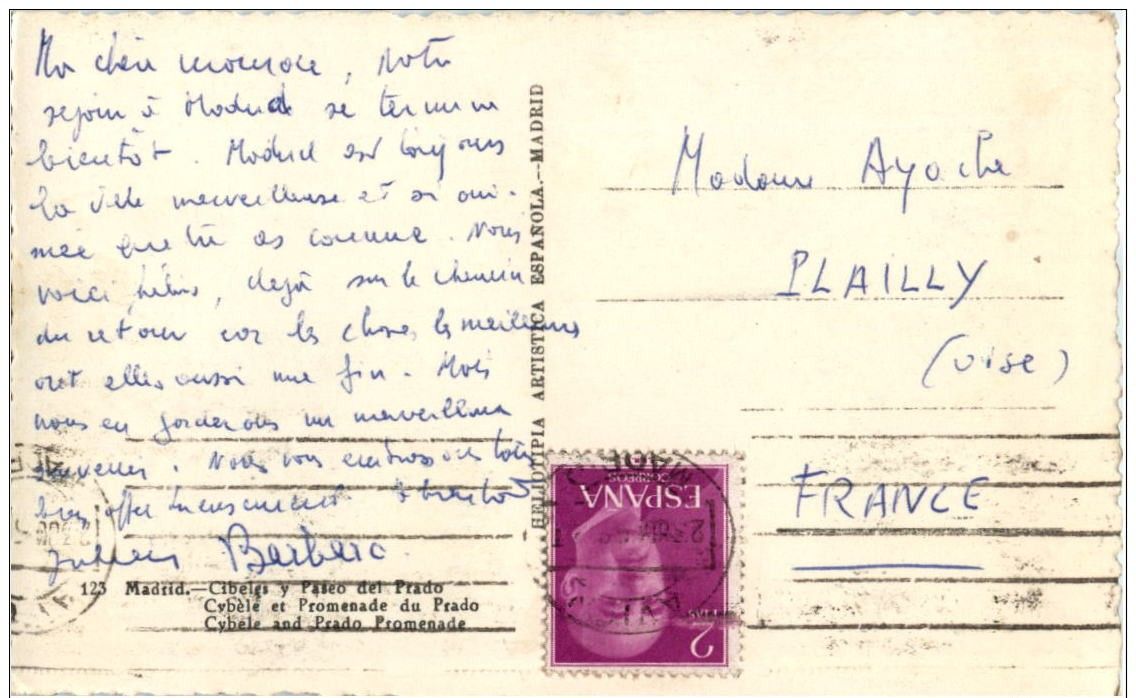 Ma chère momone, Notre
séjour à Madrid se termine
bientôt. Madrid est toujours
la ville merveilleuse et si ani-
mée que tu as connue. Nous
voici, hélas, dejà sur le chemin
du retour car les choses les meilleures
ont elles aussi une fin. Mais
nous en garderons un merveilleux
souvenir. Nous vous embrassons tous
bien affectueusement
Barbara
123 Madrid.—Cibeles y Paseo del Prado
Cybèle et Promenade du Prado
Cybele and Prado Promenade
HELIOTIPIA ARTISTICA ESPAÑOLA.—MADRID
Madame Ayache
PLAILLY
(Oise)
FRANCE
ESPAÑA
CORREOS
2
PTAS